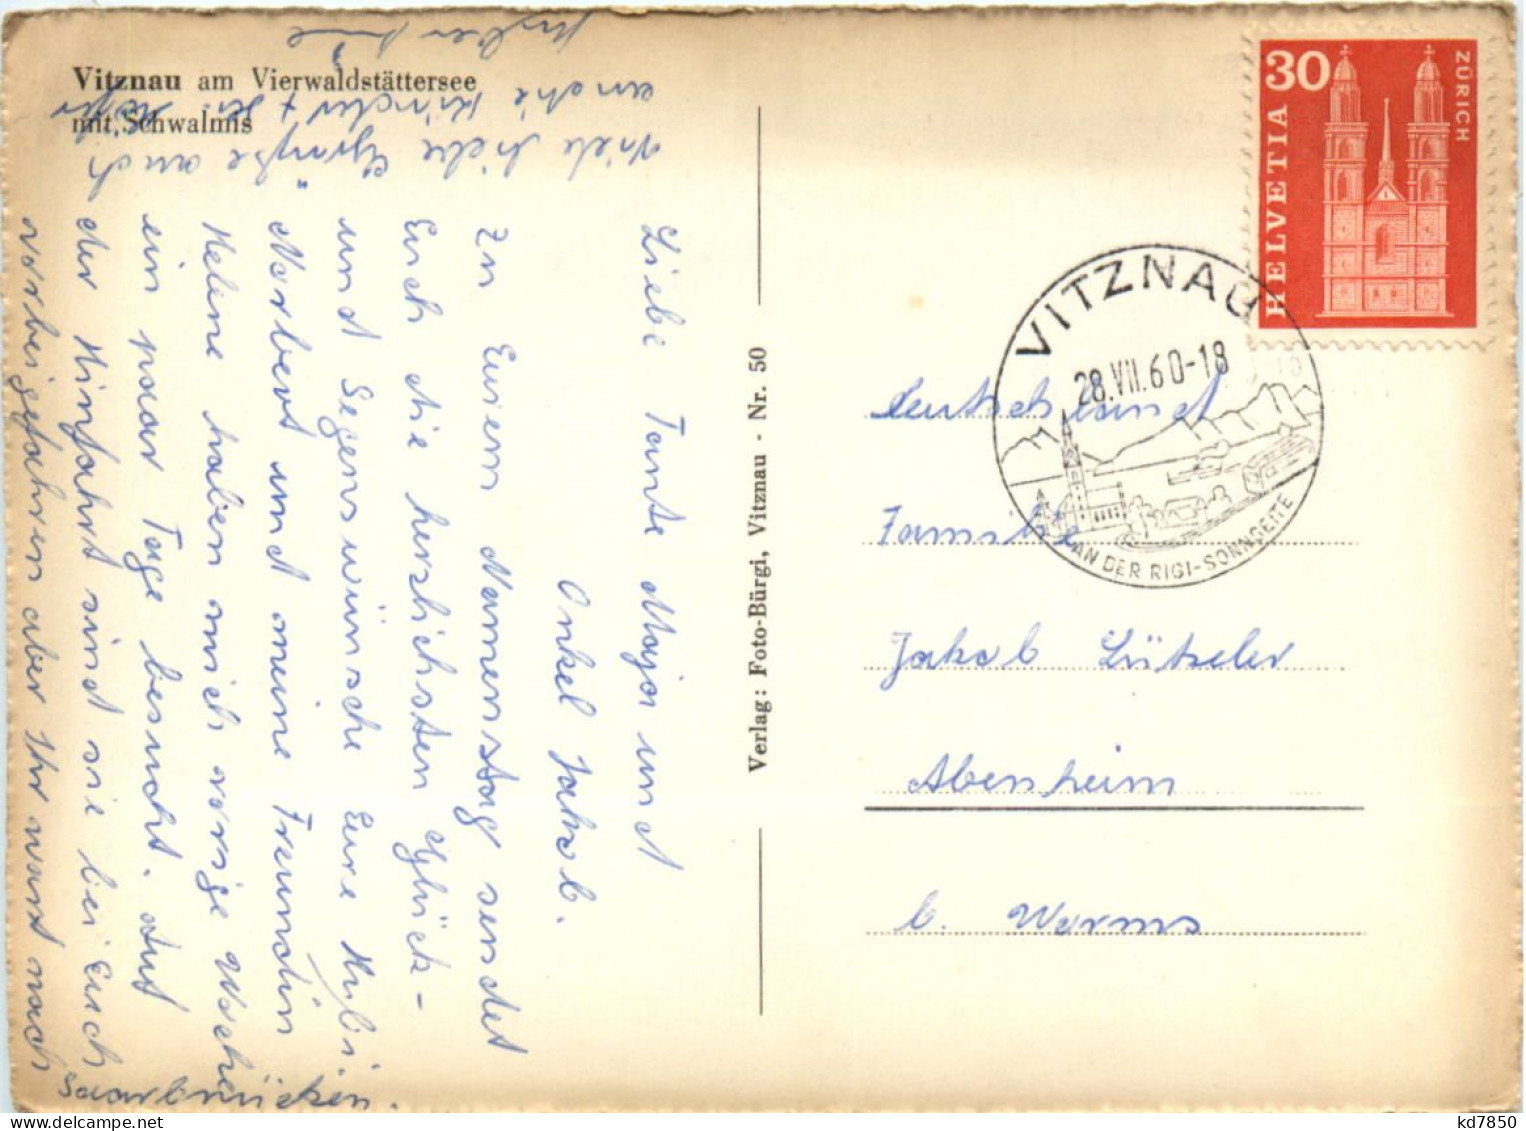 Vitznau am Vierwaldstättersee
mit Schwalmis
Liebe Tante Major und
Onkel Jakob.
Zu Eurem Namenstag sendet
Euch die herzlichsten Glück-
und Segenswünsche Eure Hulri
Norbert und meine Freundin
Helene haben mich vorige Woche
ein paar Tage besucht. Auf
der Hinfahrt sind sie bei Euch
vorbeigefahren aber Ihr wart nach
Saarbrücken.
Viele liebe Grüße auch
an die Kinder +
Verlag: Foto-Bürgi, Vitznau - Nr. 50
30
HELVETIA
ZÜRICH
VITZNAU
28.VII.60-18
AN DER RIGI-SONNSEITE
Deutschland
Familie
Jakob Lützeler
Abenheim
b. Worms
kd7850